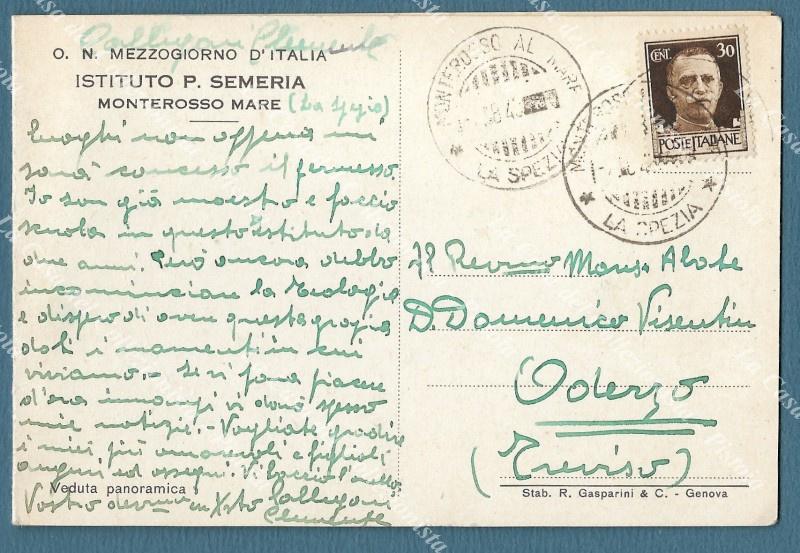 Pallegoni Clemente
O. N. MEZZOGIORNO D'ITALIA
ISTITUTO P. SEMERIA
MONTEROSSO MARE (La Spezia)
luoghi non appena mi
sarà concesso il permesso.
Io son già maestro e faccio
scuola in questo Istituto da
due anni. Però ancora debbo
incominciare la Teologia
e dispero di aver questa grazia
dati i momenti in cui
viviamo. - Se vi farà piacere
d'ora innanzi vi darò spesso
mie notizie. - Vogliate gradire
i miei più amorevoli e figliali
auguri ed ossequi. Vi bacio l'anello
Vostro dev.mo in Xsto Pallegoni
Clemente
Veduta panoramica
MONTEROSSO AL MARE
LA SPEZIA
MONTEROSSO
LA SPEZIA
CENT. 30
POSTE ITALIANE
Il Rev.mo Mons. Abate
D. Domenico Visentin
Oderzo
(Treviso)
Stab. R. Gasparini & C. - Genova